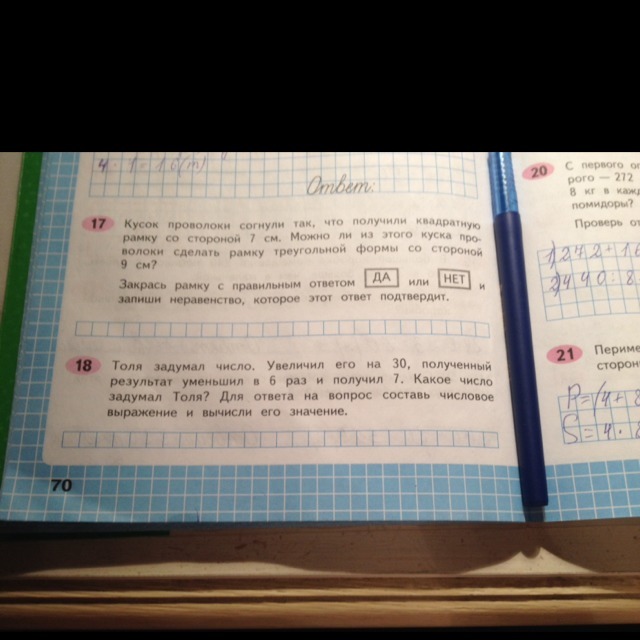 Ответ:
17 Кусок проволоки согнули так, что получили квадратную
рамку со стороной 7 см. Можно ли из этого куска про-
волоки сделать рамку треугольной формы со стороной
9 см?
Закрась рамку с правильным ответом ДА или НЕТ и
запиши неравенство, которое этот ответ подтвердит.
18 Толя задумал число. Увеличил его на 30, полученный
результат уменьшил в 6 раз и получил 7. Какое число
задумал Толя? Для ответа на вопрос составь числовое
выражение и вычисли его значение.
70
20 С первого
рого — 272
8 кг в
помидоры?
Проверь
21